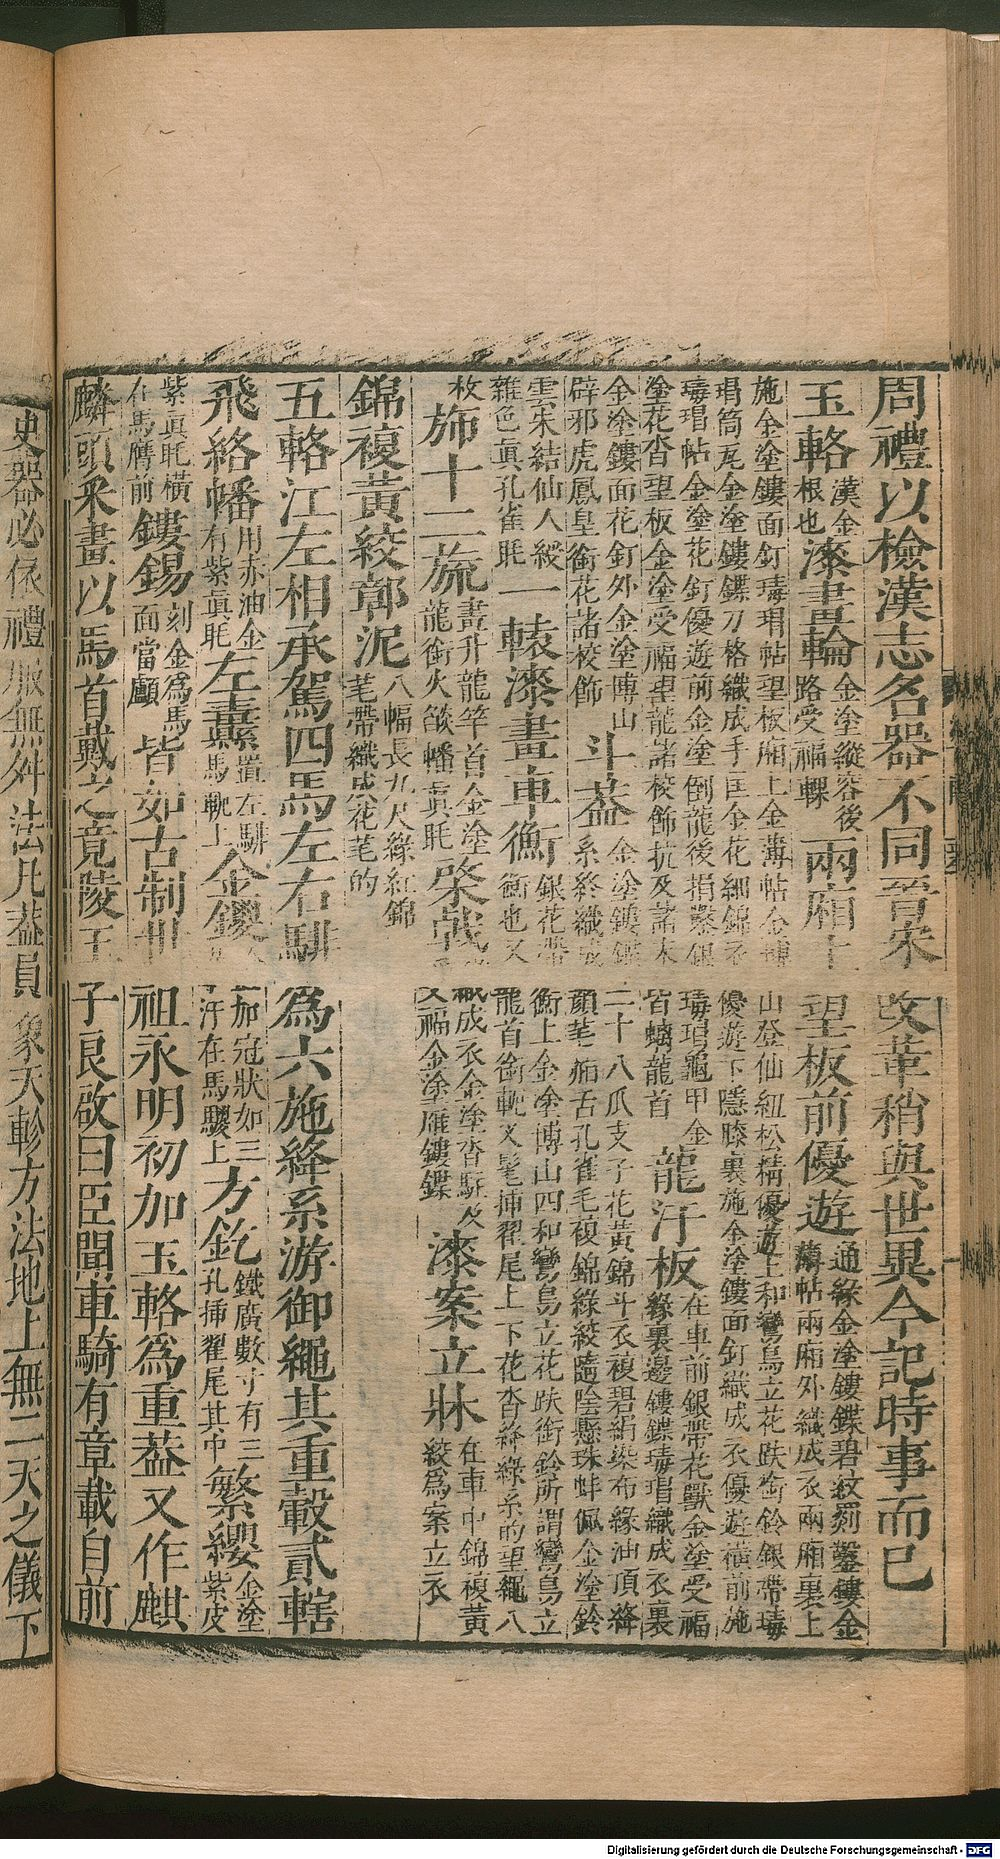 周禮以檢漢志名器不同晉宋改革稍與世異今記時事而已
玉輅漢金根也漆畫輪金塗縱容後路受福輠兩廂上望板前優遊通緣金塗鏤鍱碧紋箌鑿鏤金薄帖兩廂外織成衣兩廂裏上
施金塗鏤面釘瑇瑁帖望板廂上金薄帖金博山登仙紐松精優遊上和鸞鳥立花趺銜鈴銀帶瑇
瑁筒瓦金塗鏤鍱刀格織成手匡金花細錦衣優遊下隱膝裏施金塗鏤面釘織成衣優遊橫前施
瑇瑁帖金塗花釘優遊前金塗倒龍後捎鑿銀瑇瑁龜甲金
塗花沓望板金塗受福望龍諸校飾抗及諸末皆螭龍首龍汗板在車前銀帶花獸金塗受福緣裏邊鏤鍱瑇瑁織成衣裏
金塗鏤面花釘外金塗博山
辟邪虎鳳皇銜花諸校飾斗蓋金塗鏤鍱二十八爪支子花黃錦斗衣複碧絹染布緣油頂絳系絡織成顏芼帞舌孔雀毛複錦綠絞隨陰懸珠蚌佩金塗鈴
雲朱結仙人綬
雜色真孔雀毦一轅漆畫車衡銀花帶衡上金塗博山四和鸞鳥立花趺銜鈴所謂鸞鳥立衡也又龍首銜軛叉髦插翟尾上下花沓絳綠系的望繩八
枚旂十二旒畫升龍竿首金塗龍銜火燄幡真毦棨戟織成衣金塗沓駐及受福金塗雁鏤鍱漆案立牀在車中錦複黃絞為案立衣
錦複黃絞鄣泥八幅長九尺綠紅錦芼帶織成花芼的
五輅江左相承駕四馬左右騑為六施絳系游御繩其重轂貳轄
飛絡幡用赤油金有紫真毦左纛置左騑馬軛上金鍐加冠狀如三汙在馬騣上方釳鐵廣數寸有三孔插翟尾其中繁纓金塗紫皮
紫真毦橫在馬膺前鏤錫刻金為馬面當顱皆如古制世祖永明初加玉輅為重蓋又作麒
麟頭采畫以馬首戴之竟陵王子良啟曰臣聞車騎有章載自前
史器必依禮服無舛法凡蓋員象天軫方法地上無二天之儀下
Digitalisierung gefördert durch die Deutsche Forschungsgemeinschaft - DFG